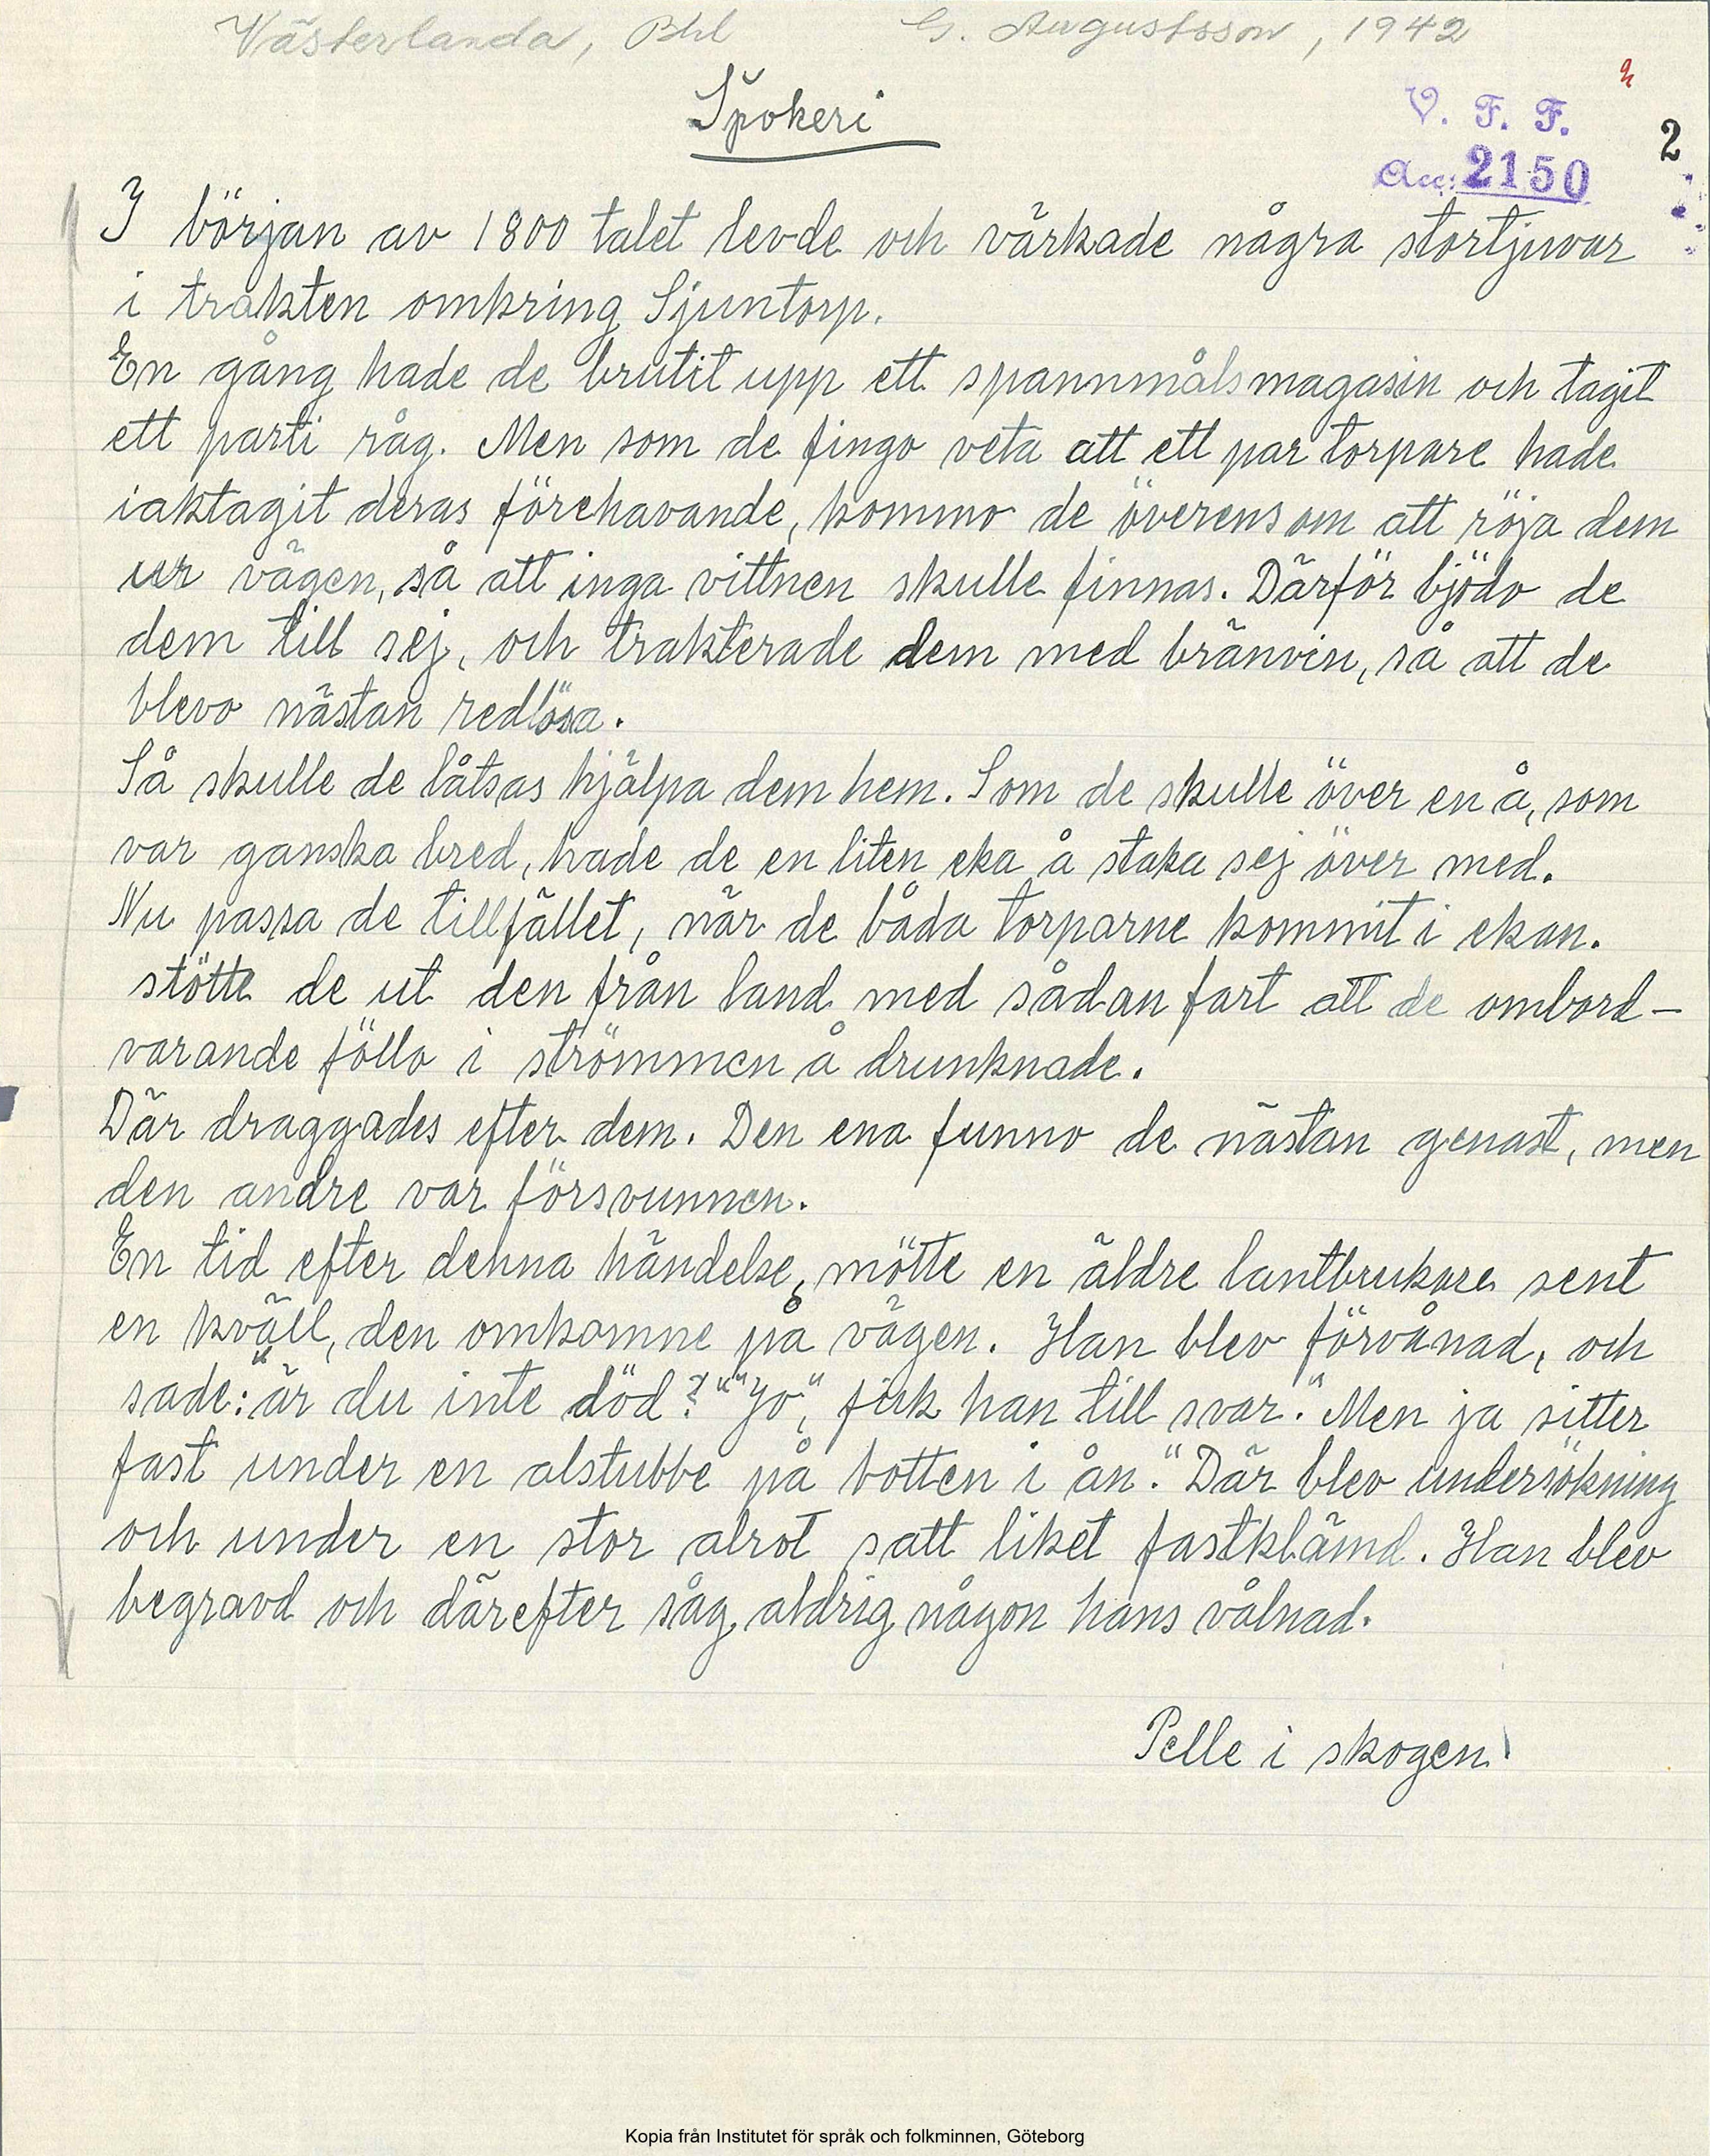 Västerlanda, Bhl G. Augustsson, 1942
Spökeri
V. F. F.
Acc: 2150
2
I början av 1800 talet levde och värkade några stortjuvar
i trakten omkring Sjuntorp.
En gång hade de brutit upp ett spannmålsmagasin och tagit
ett parti råg. Men som de fingo veta att ett par torpare hade
iaktagit deras förehavande, kommo de överens om att röja dem
ur vägen, så att inga vittnen skulle finnas. Därför bjödo de
dem till sej, och trakterade dem med bränvin, så att de
blevo nästan redlösa.
Så skulle de låtsas hjälpa dem hem. Som de skulle över en å, som
var ganska bred, hade de en liten eka å staka sej över med.
Nu passa de tillfället, när de båda torparne kommit i ekan.
stötte de ut den från land med sådan fart att de ombord-
varande föllo i strömmen å drunknade.
Där draggades efter dem. Den ena funno de nästan genast, men
den andre var försvunnen.
En tid efter denna händelse, mötte en äldre lantbrukare sent
en kväll, den omkomne på vägen. Han blev förvånad, och
sade: "är du inte död?" "Jo", fick han till svar. "Men ja sitter
fast under en alstubbe på botten i ån." Där blev undersökning
och under en stor alrot satt liket fastklämd. Han blev
begravd och därefter såg aldrig någon hans vålnad.
Pelle i skogen
Kopia från Institutet för språk och folkminnen, Göteborg